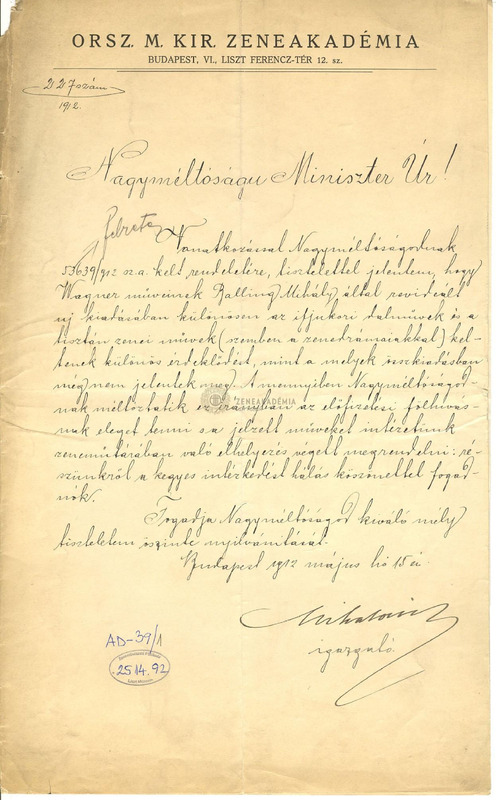 ORSZ. M. KIR. ZENEAKADÉMIA
BUDAPEST, VI., LISZT FERENCZ-TÉR 12. sz.
227 szám
1912.
Nagyméltóságu Miniszter Úr!
Vonatkozással Nagyméltóságodnak
53639/912 sz.a. kelt rendeletére, tisztelettel jelentem, hogy
Wagner műveinek Balling Mihály által revideált
uj kiadásában különösen az ifjukori dalművek és a
tisztán zenei művek (szemben a zenedrámaiakkal) kel-
tenek különös érdeklődést, mint a melyek összkiadásban
még nem jelentek meg. A mennyiben Nagyméltóságod-
nak méltóztatik ez irányban az előfizetési fölhivás-
nak eleget tenni s a jelzett műveket intézetünk
zeneműtárában való elhelyezés végett megrendelni: ré-
szünkről a kegyes intézkedést hálás köszönettel fogad-
nók.
Fogadja Nagyméltóságod kiváló mély
tiszteletem őszinte nyilvánitását.
Budapest 1912 május hó 15 én.
Mihalovich
igazgató.
AD-39/1
25 14. 92
ZENEAKADÉMIA